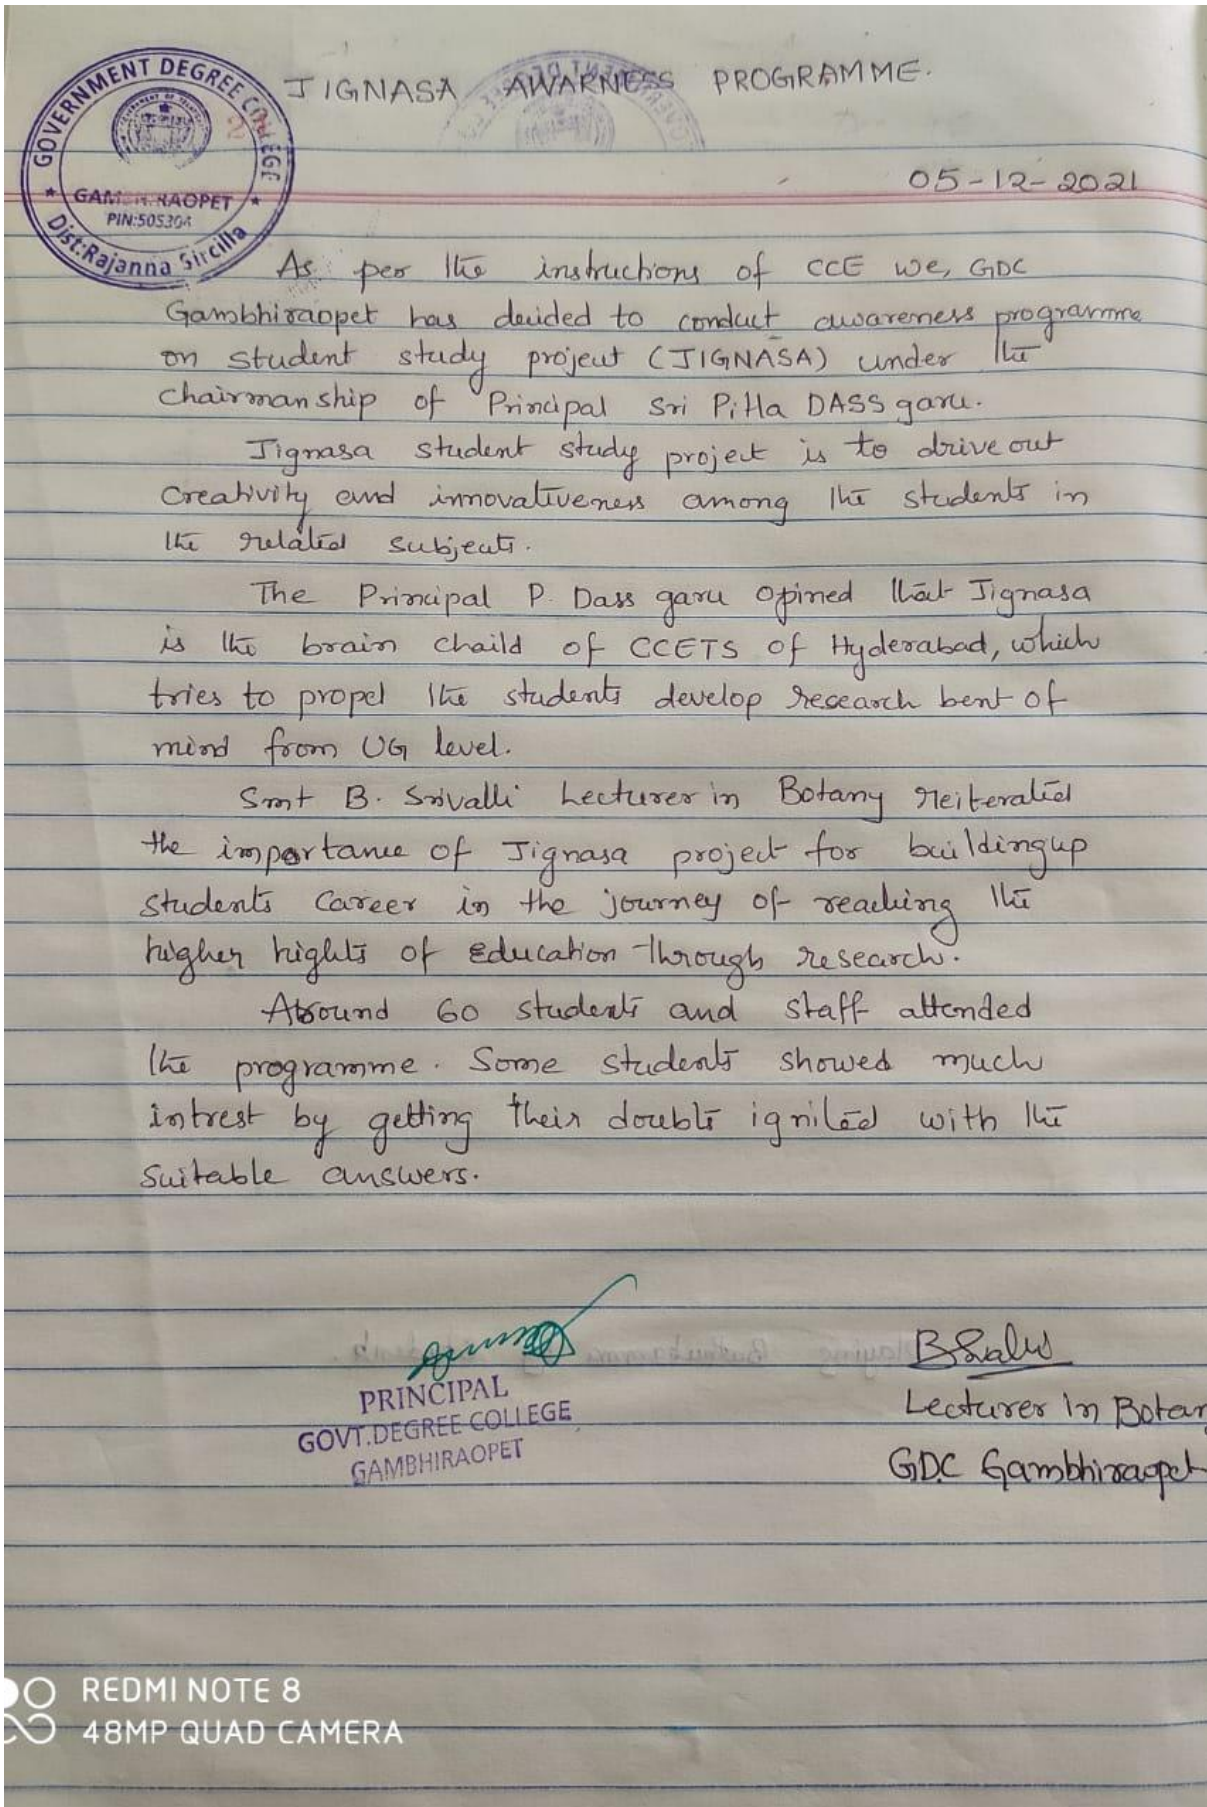 GOVERNMENT DEGREE COLLEGE
GAMBHIRAOPET
PIN:505304
Dist:Rajanna Sircilla
JIGNASA AWARNESS PROGRAMME.
05-12-2021
As per the instructions of CCE we, GDC
Gambhiraopet has decided to conduct awareness programme
on student study project (JIGNASA) under the
chairmanship of Principal Sri Pitla DASS garu.
Jignasa student study project is to drive out
creativity and innovativeness among the students in
the related subjects.
The Principal P. Dass garu opined that Jignasa
is the brain chaild of CCETS of Hyderabad, which
tries to propel the students develop research bent of
mind from UG level.
Smt B. Srivalli Lecturer in Botany reiterated
the importance of Jignasa project for buildingup
students career in the journey of reaching the
higher hights of Education through research.
Around 60 students and staff attended
the programme. Some students showed much
intrest by getting their doubts ignited with the
suitable answers.
PRINCIPAL
GOVT.DEGREE COLLEGE
GAMBHIRAOPET
Lecturer in Botan
GDC Gambhiraopet
REDMI NOTE 8
48MP QUAD CAMERA